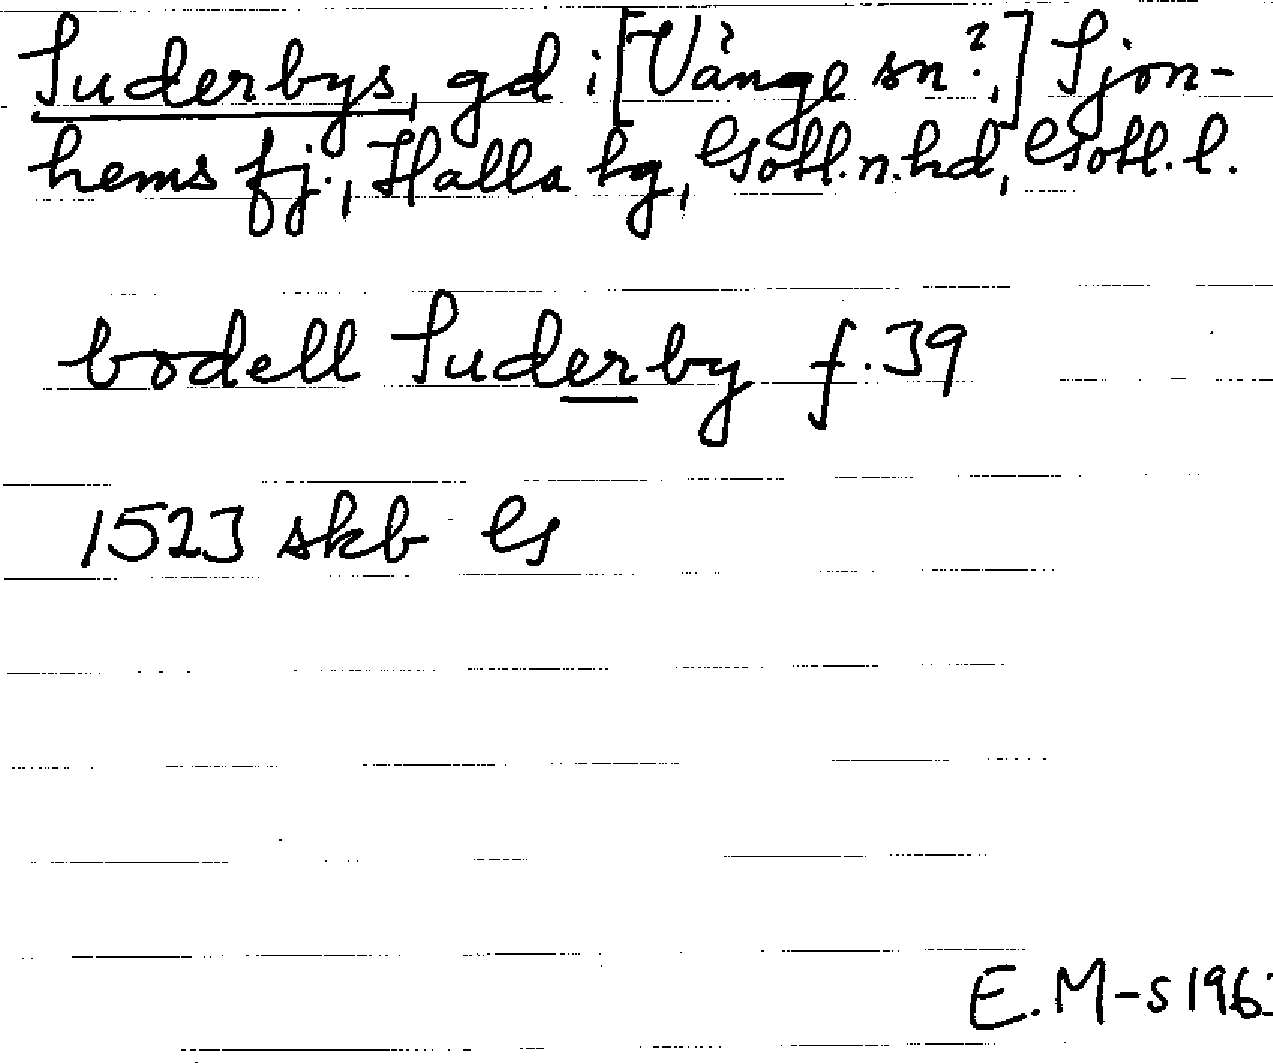 Suderbys, gd i [Vänge sn?,] Sjon-
hems fj., Halla tg, Gotl. n. hd, Gotl. l.
bodell Suderby f. 39
1523 skb G
E. M-s 196